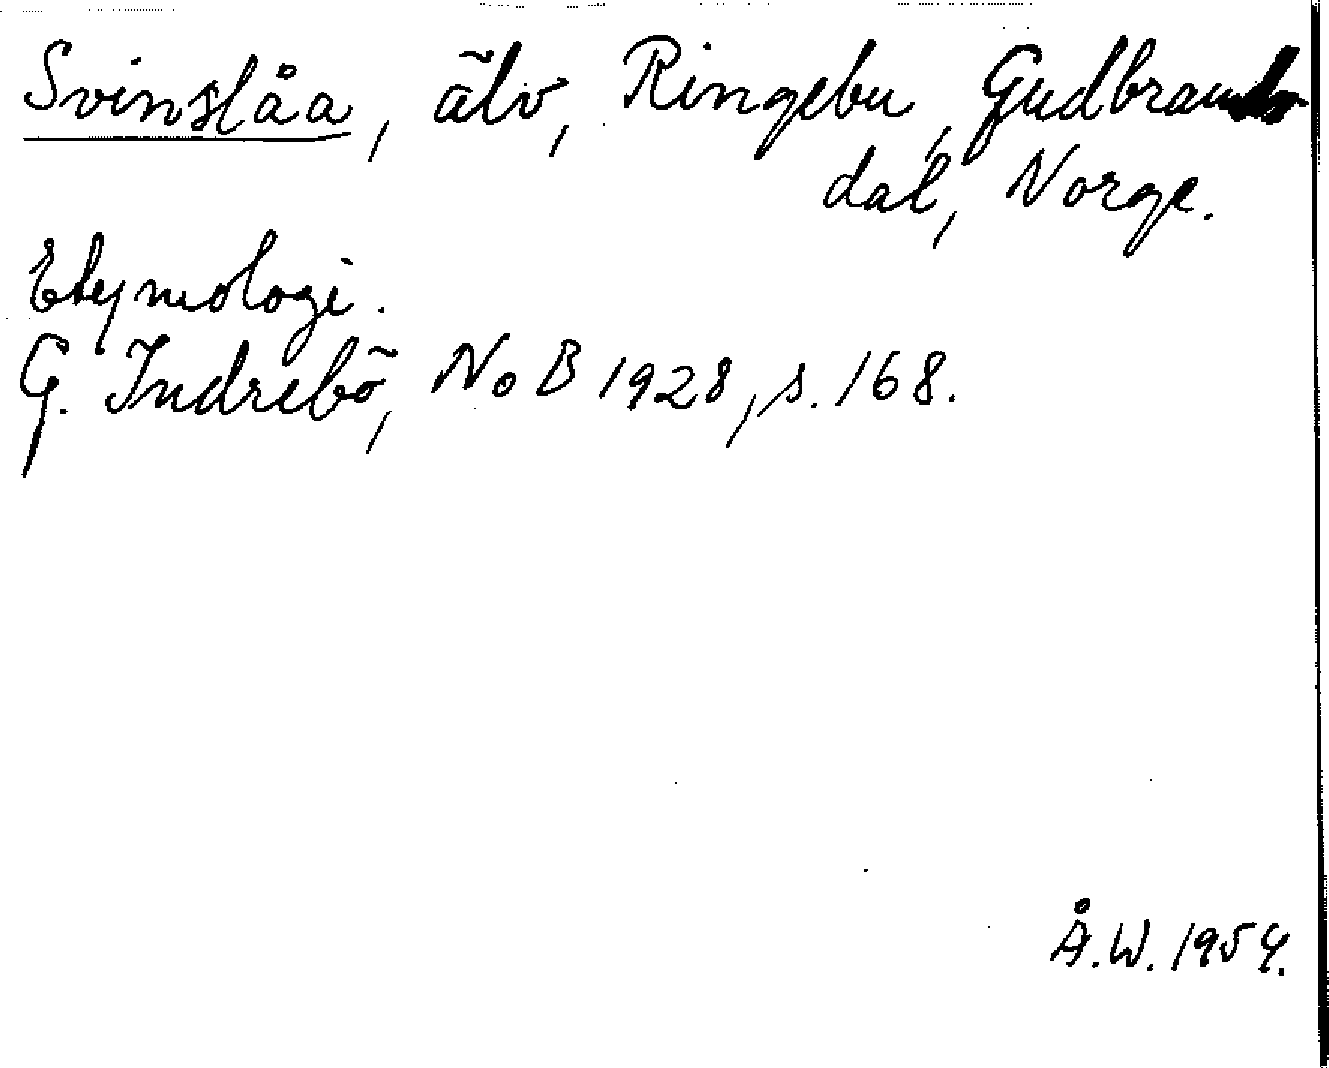 Svinslåa, älv, Ringebu, Gudbrands
dal, Norge.
Etymologi.
G. Indrebö, NoB 1928, s. 168.
Å.W. 1954.